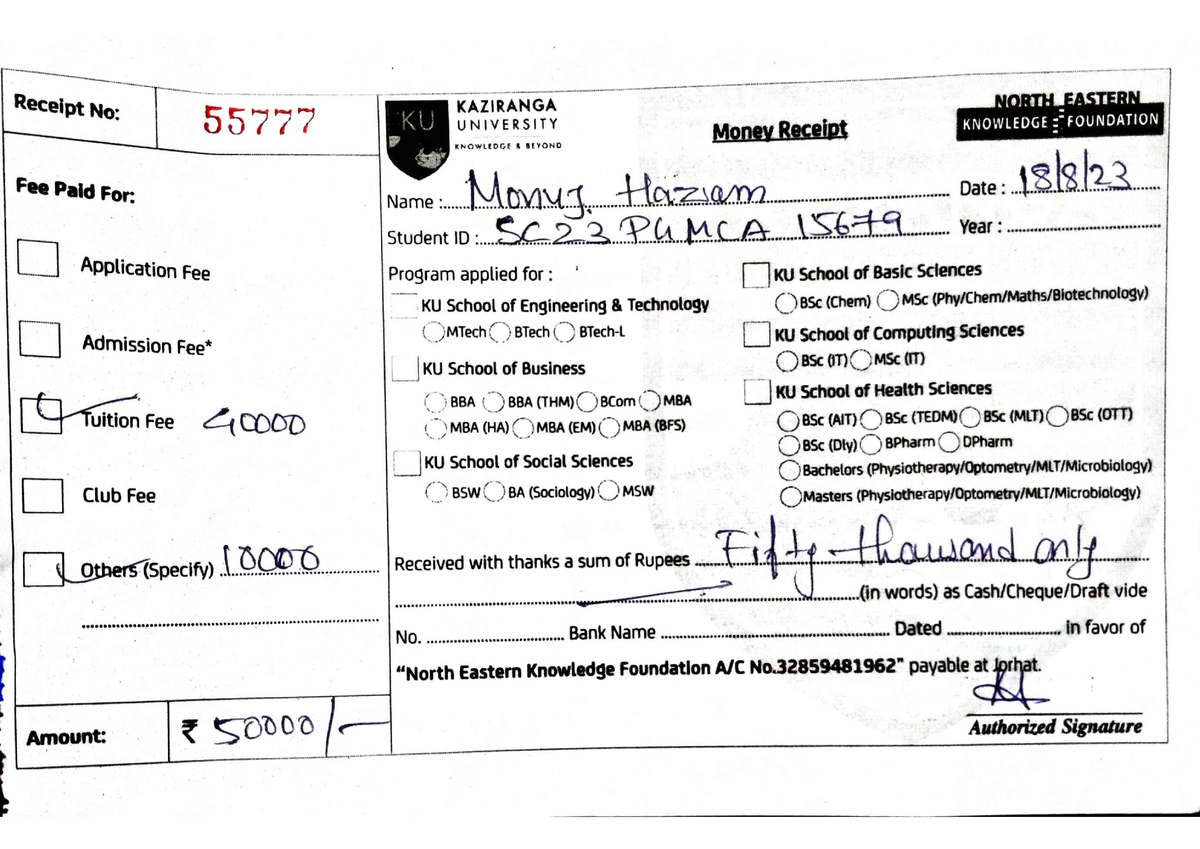 Receipt No: 55777
Fee Paid For:
Application Fee
Admission Fee*
Tuition Fee 40000
Club Fee
Others (Specify) 10000
Amount: ₹ 50000/-
KU
KAZIRANGA
UNIVERSITY
KNOWLEDGE & BEYOND
Money Receipt
NORTH EASTERN
KNOWLEDGE FOUNDATION
Name : Date : 18/8/23
Student ID : SC23PGMCA15679 Year :
Program applied for :
KU School of Engineering & Technology
MTech BTech BTech-L
KU School of Business
BBA BBA (THM) BCom MBA
MBA (HA) MBA (EM) MBA (BFS)
KU School of Social Sciences
BSW BA (Sociology) MSW
KU School of Basic Sciences
BSc (Chem) MSc (Phy/Chem/Maths/Biotechnology)
KU School of Computing Sciences
BSc (IT) MSc (IT)
KU School of Health Sciences
BSc (AIT) BSc (TEDM) BSc (MLT) BSc (OTT)
BSc (Dly) BPharm DPharm
Bachelors (Physiotherapy/Optometry/MLT/Microbiology)
Masters (Physiotherapy/Optometry/MLT/Microbiology)
Received with thanks a sum of Rupees Fifty thousand only
(in words) as Cash/Cheque/Draft vide
No. Bank Name Dated in favor of
"North Eastern Knowledge Foundation A/C No.32859481962" payable at Jorhat.
Authorized Signature